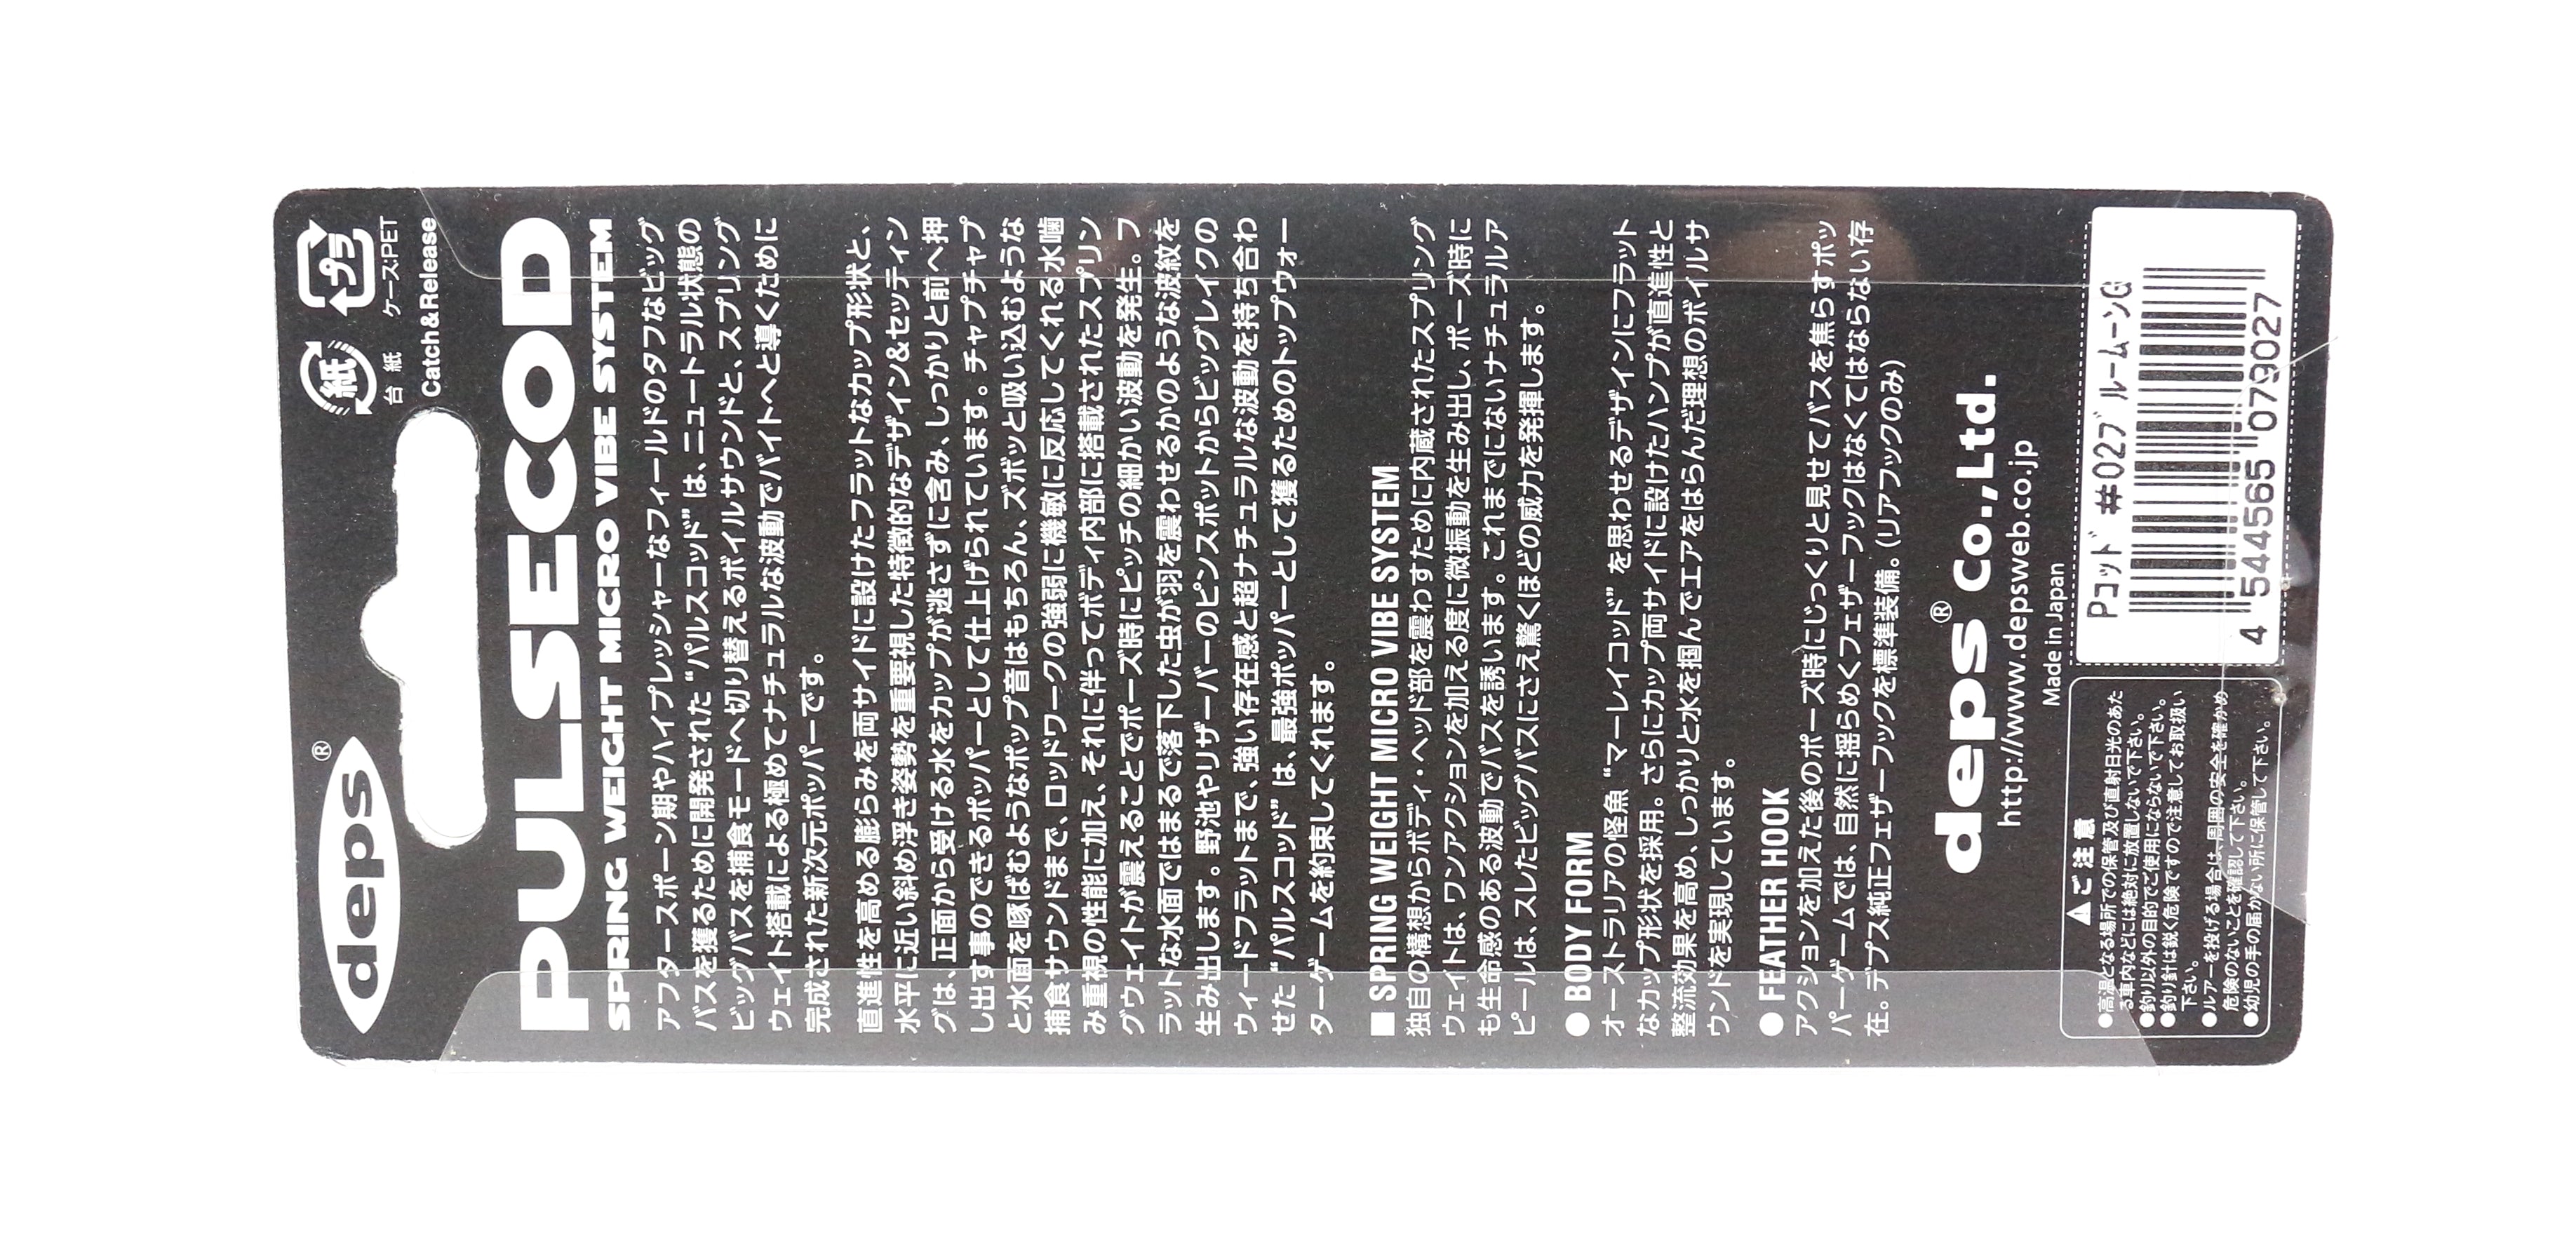 deps®
紙
プラ
台紙 ケース:PET
Catch&Release
PULSECOD
SPRING WEIGHT MICRO VIBE SYSTEM
アフタースポーン期やハイプレッシャーなフィールドのタフなビッグ
バスを獲るために開発された“パルスコッド”は、ニュートラル状態の
ビッグバスを捕食モードへ切り替えるボイルサウンドと、スプリング
ウェイト搭載による極めてナチュラルな波動でバイトへと導くために
完成された新次元ポッパーです。
直進性を高める膨らみを両サイドに設けたフラットなカップ形状と、
水平に近い斜め浮き姿勢を重要視した特徴的なデザイン&セッティン
グは、正面から受ける水をカップが逃さずに含み、しっかりと前へ押
し出す事のできるポッパーとして仕上げられています。チャプチャプ
と水面を啄ばむようなポップ音はもちろん、ズボッと吸い込むような
捕食サウンドまで、ロッドワークの強弱に機敏に反応してくれる水噛
み重視の性能に加え、それに伴ってボディ内部に搭載されたスプリン
グウェイトが震えることでポーズ時にピッチの細かい波動を発生。フ
ラットな水面ではまるで落下した虫が羽を震わせるかのような波紋を
生み出します。野池やリザーバーのピンスポットからビッグレイクの
ウィードフラットまで、強い存在感と超ナチュラルな波動を持ち合わ
せた“パルスコッド”は、最強ポッパーとして獲るためのトップウォー
ターゲームを約束してくれます。
■ SPRING WEIGHT MICRO VIBE SYSTEM
独自の構想からボディ・ヘッド部を震わすために内蔵されたスプリング
ウェイトは、ワンアクションを加える度に微振動を生み出し、ポーズ時に
も生命感のある波動でバスを誘います。これまでにないナチュラルア
ピールは、スレたビッグバスにさえ驚くほどの威力を発揮します。
● BODY FORM
オーストラリアの怪魚“マーレイコッド”を思わせるデザインにフラット
なカップ形状を採用。さらにカップ両サイドに設けたハンプが直進性と
整流効果を高め、しっかりと水を掴んでエアをはらんだ理想のボイルサ
ウンドを実現しています。
● FEATHER HOOK
アクションを加えた後のポーズ時にじっくりと見せてバスを焦らすポッ
パーゲームでは、自然に揺らめくフェザーフックはなくてはならない存
在。デプス純正フェザーフックを標準装備。(リアフックのみ)
deps® Co.,Ltd.
http://www.depsweb.co.jp
Made in Japan
⚠ご注意
●高温となる場所での保管及び直射日光のあた
る車内などには絶対に放置しないで下さい。
●釣り以外の目的でご使用にならないで下さい。
●釣り針は鋭く危険ですので注意してお取扱い
下さい。
●ルアーを投げる場合は、周囲の安全を確かめ
危険のないことを確認して下さい。
●幼児の手の届かない所に保管して下さい。
Pコッド #02ブルームーンG
4 544565 079027